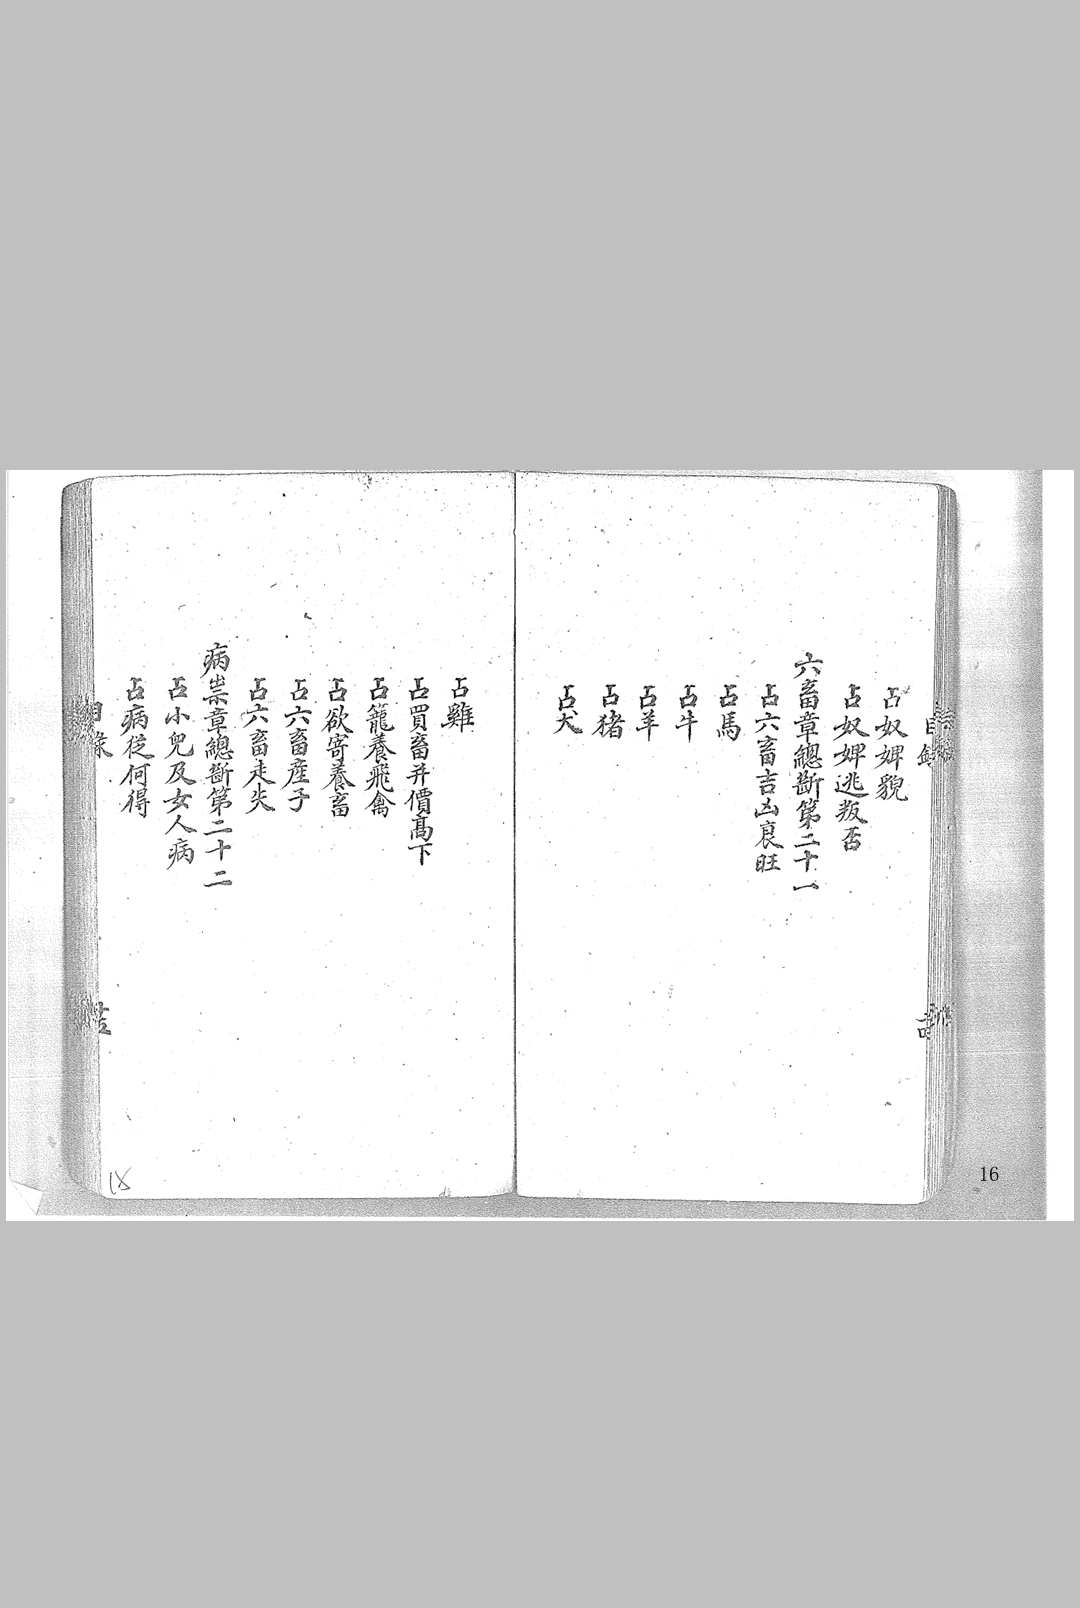 占奴婢貌
占奴婢逃叛否
六畜章總斷第二十一
占六畜吉凶衰旺
占馬
占牛
占羊
占猪
占犬
占雞
占買畜并價髙下
占籠養飛禽
占欲寄養畜
占六畜産子
占六畜走失
病祟章總斷第二十二
占小兒及女人病
占病從何得
目録
16